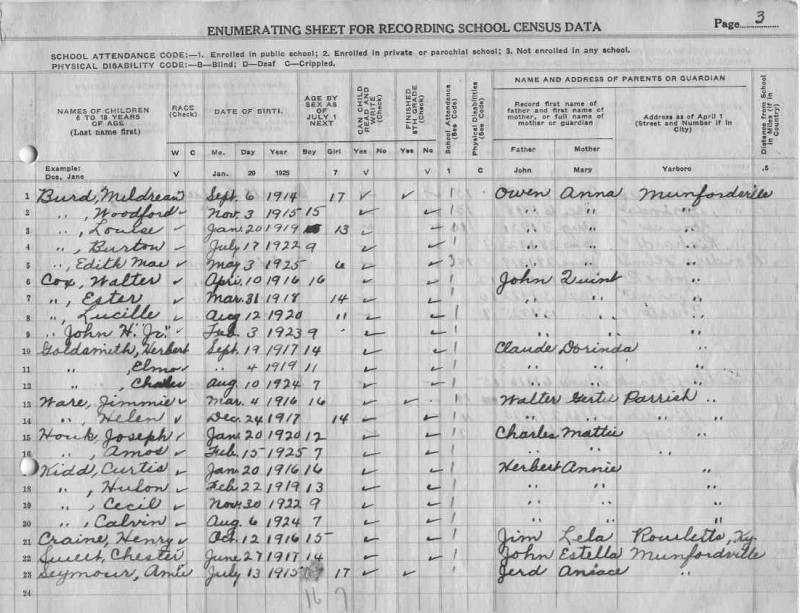 Page 3
ENUMERATING SHEET FOR RECORDING SCHOOL CENSUS DATA
SCHOOL ATTENDANCE CODE:—1. Enrolled in public school; 2. Enrolled in private or parochial school; 3. Not enrolled in any school.
PHYSICAL DISABILITY CODE:—B—Blind; D—Deaf C—Crippled.
NAMES OF CHILDREN 6 TO 18 YEARS OF AGE (Last name first) RACE (Check) DATE OF BIRTH. AGE BY SEX AS OF JULY 1 NEXT CAN CHILD READ AND WRITE (Check) FINISHED 8TH GRADE (Check) School Attendance (See Code) Physical Disabilities (See Code) NAME AND ADDRESS OF PARENTS OR GUARDIAN Distance from School in Miles (if in Country)
Record first name of father and first name of mother, or full name of mother or guardian Address as of April 1 (Street and Number if in City)
W C Mo. Day Year Boy Girl Yes No Yes No Father Mother
Example: Doe, Jane V Jan. 20 1925 7 V V 1 C John Mary Yarboro .5
1 Burd, Mildrean ✓ Sept. 6 1914 17 ✓ ✓ 1 Owen Anna Munfordville
2 " , Woodford ✓ Nov. 3 1915 15 ✓ ✓ 1 " " "
3 " , Louise ✓ Jan 20 1919 13 ✓ ✓ 1 " " "
4 " , Burton ✓ July 17 1922 9 ✓ ✓ 1 " " "
5 " , Edith Mae ✓ May 3 1925 6 ✓ ✓ 3 " " "
6 Cox, Walter ✓ Apr. 10 1916 16 ✓ ✓ 1 John Quint "
7 " , Ester ✓ Mar. 31 1918 14 ✓ ✓ 1 " " "
8 " , Lucille ✓ Aug 12 1920 11 ✓ ✓ 1 " " "
9 " John H. "Jr." ✓ Feb. 3 1923 9 ✓ ✓ 1 " " "
10 Goldsmith, Herbert Sept. 19 1917 14 ✓ ✓ 1 Claude Dorinda "
11 " , Elmo ✓ " 4 1919 11 ✓ ✓ 1 " " "
12 " , Charles Aug. 10 1924 7 ✓ ✓ 1 " " "
13 Ware, Jimmie ✓ Mar. 4 1916 16 ✓ ✓ 1 Walter Gertie Parrish "
14 " , Helen ✓ Dec. 24 1917 14 ✓ ✓ 1 " " "
15 Houk, Joseph ✓ Jan. 20 1920 12 ✓ ✓ 1 Charles Mattie "
16 " , Amos ✓ Feb. 15 1925 7 ✓ ✓ 1 " " "
17 Kidd, Curtis ✓ Jan 20 1916 16 ✓ ✓ 1 Herbert Annie "
18 " , Hulon ✓ Feb 22 1919 13 ✓ ✓ 1 " " "
19 " , Cecil ✓ Nov. 30 1922 9 ✓ ✓ 1 " " "
20 " , Calvin ✓ Aug. 6 1924 7 ✓ ✓ 1 " " "
21 Craine, Henry ✓ Oct. 12 1916 15 ✓ ✓ 1 Jim Lela Rowletts, Ky
22 Sweet, Chester June 27 1917 14 ✓ ✓ 1 John Estella Munfordville
23 Seymour, Amie July 13 1915 17 ✓ ✓ 1 Jerd "
24
16 7